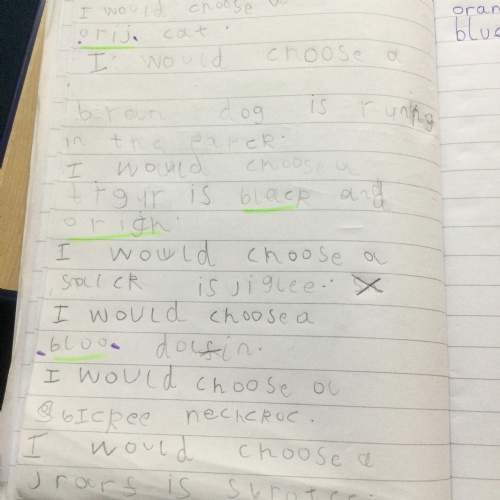 I would choose a
orij. cat.
I would choose a
broun dog is runing
in the parck.
I would choose a
tigur is black and
origh.
I would choose a
snaick is jiglee.
I would choose a
.bloo. dolfin.
I would choose a
neckroc.
I would choose a
is
oran
blue